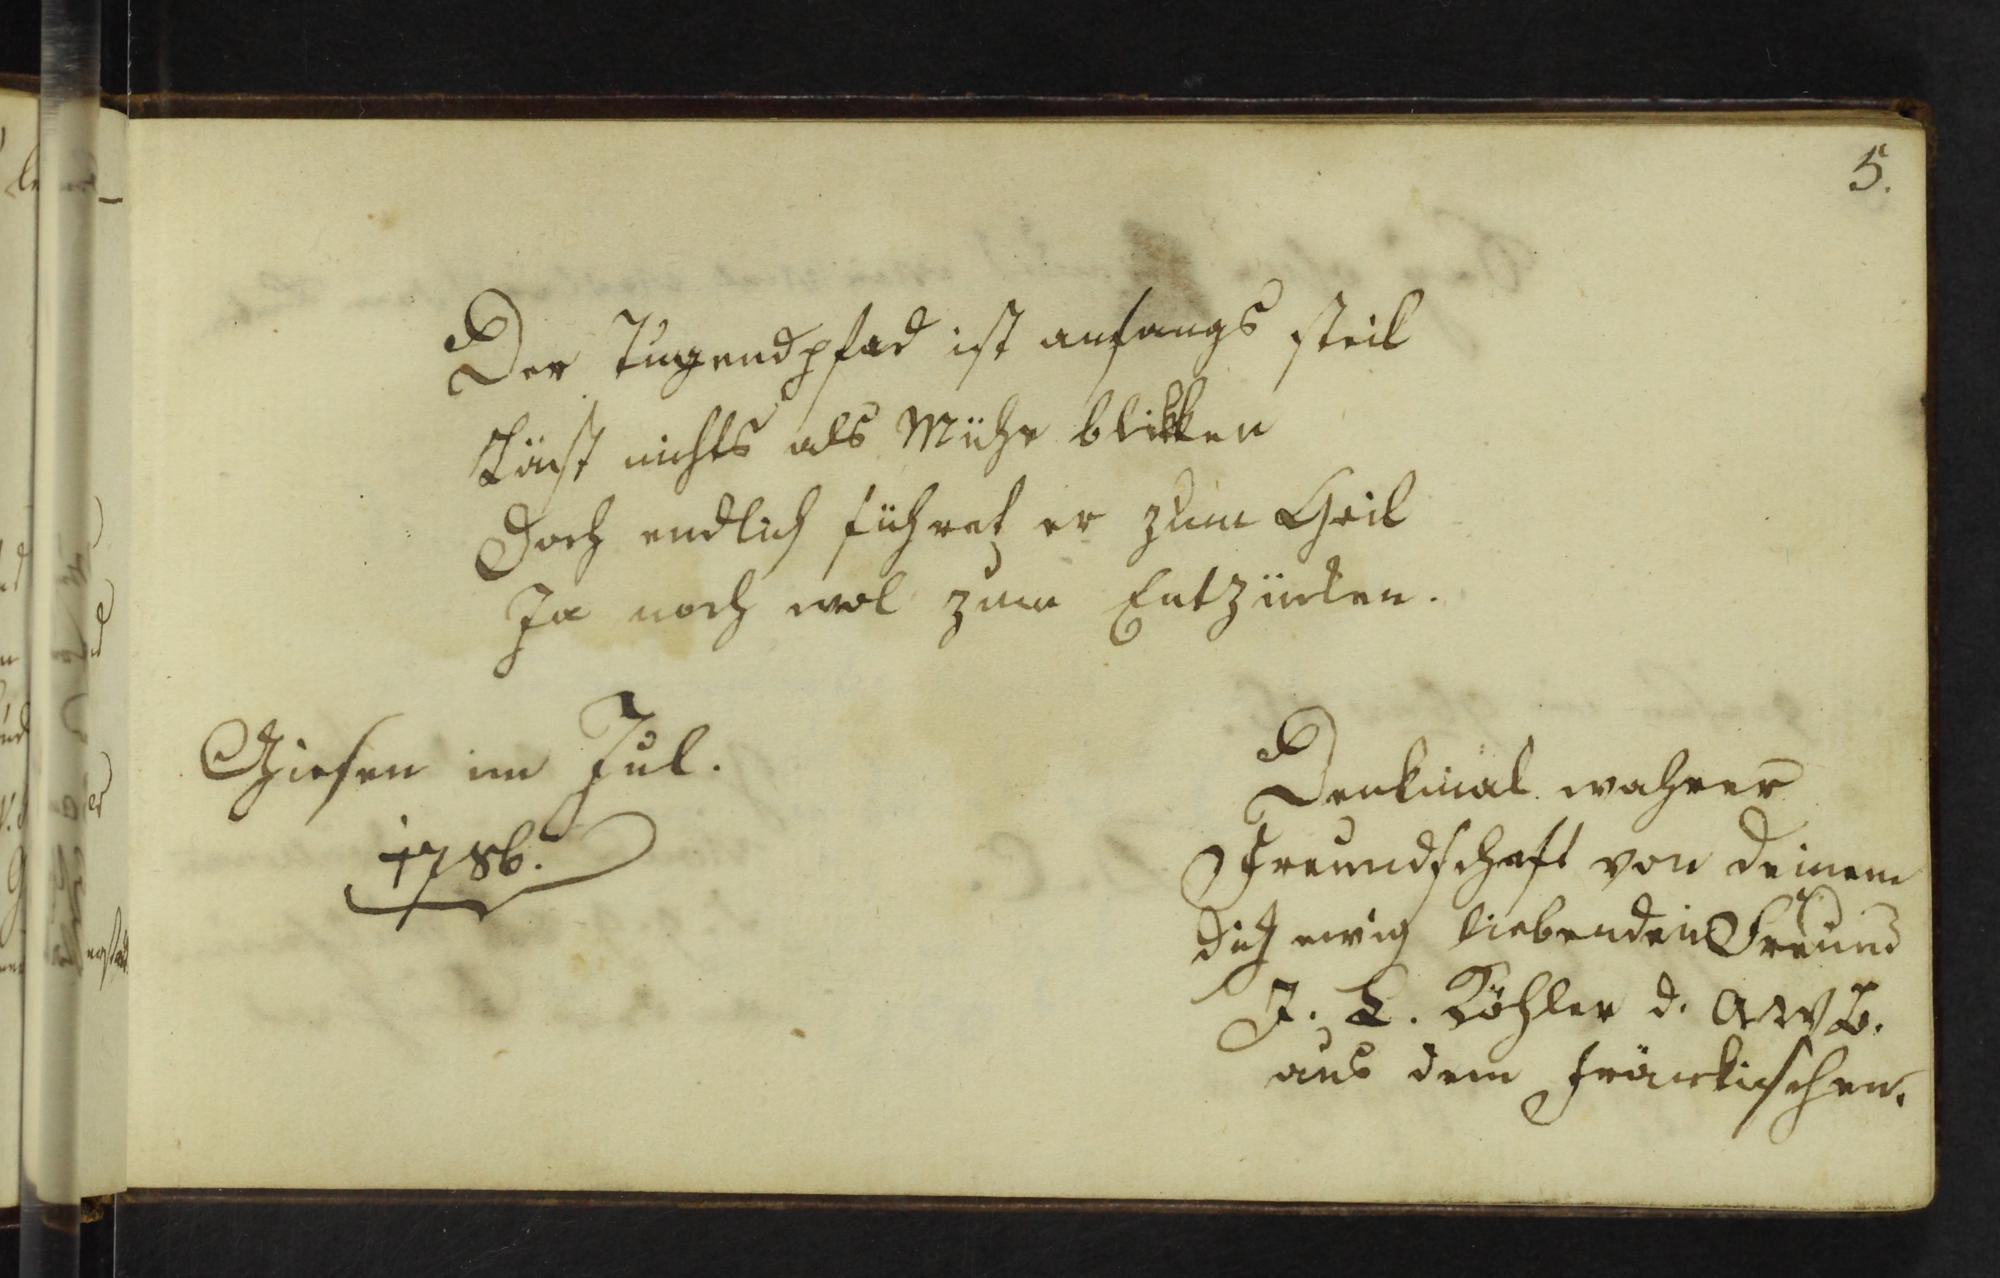 5.
Der Tugendpfad ist anfangs steil
Läst nichts als Mühe blikken
Doch endlich führet er zum Heil
Ja noch wol zum Entzücken.
Giesen im Jul.
1786.
Denkmal wahrer
Freundschaft von deinem
dich ewig liebenden Freund
J. L. Köhler d. GWB.
aus dem Fränkischen.